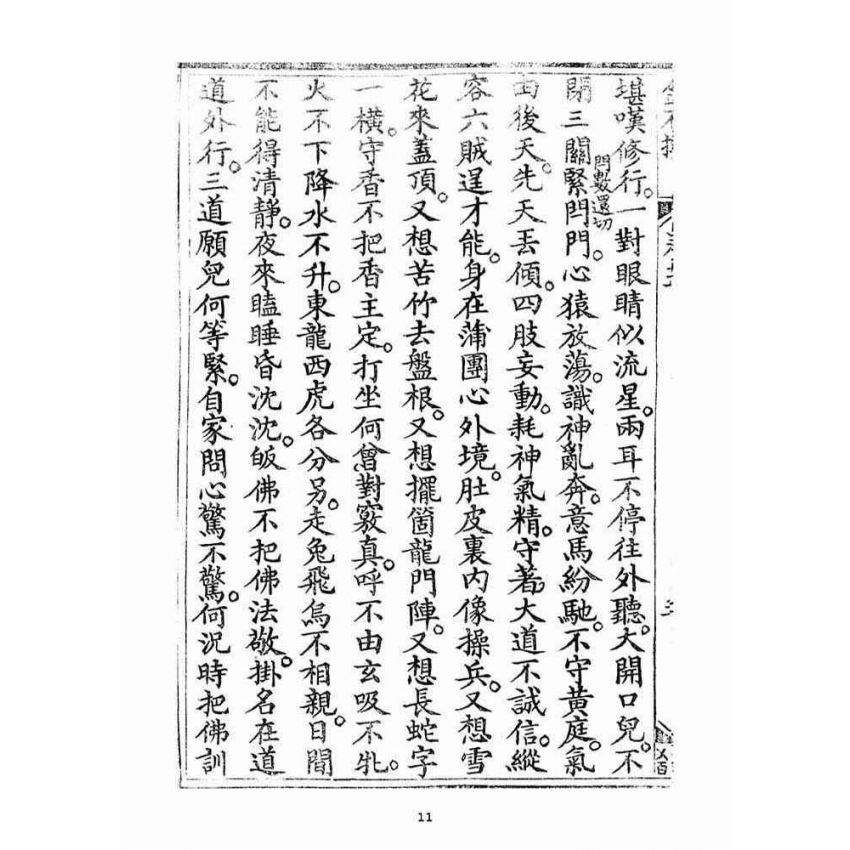 堪嘆修行。一對眼睛似流星。兩耳不停往外聽。大開口兒。不
閉三關緊閂門。心猿放蕩。識神亂奔。意馬紛馳。不守黃庭。氣
閂數還切
由後天。先天丟傾。四肢妄動。耗神氣精。守著大道不誠信。縱
容六賊逞才能。身在蒲團心外境。肚皮裏內像操兵。又想雪
花來蓋頂。又想苦竹去盤根。又想擺箇龍門陣。又想長蛇字
一橫。守香不把香主定。打坐何曾對竅真。呼不由玄吸不牝。
火不下降水不升。東龍西虎各分另。走兔飛烏不相親。日間
不能得清靜。夜來瞌睡昏沈沈。皈佛不把佛法敬。掛名在道
道外行。三道願兒何等緊。自家問心驚不驚。何況時把佛訓
11